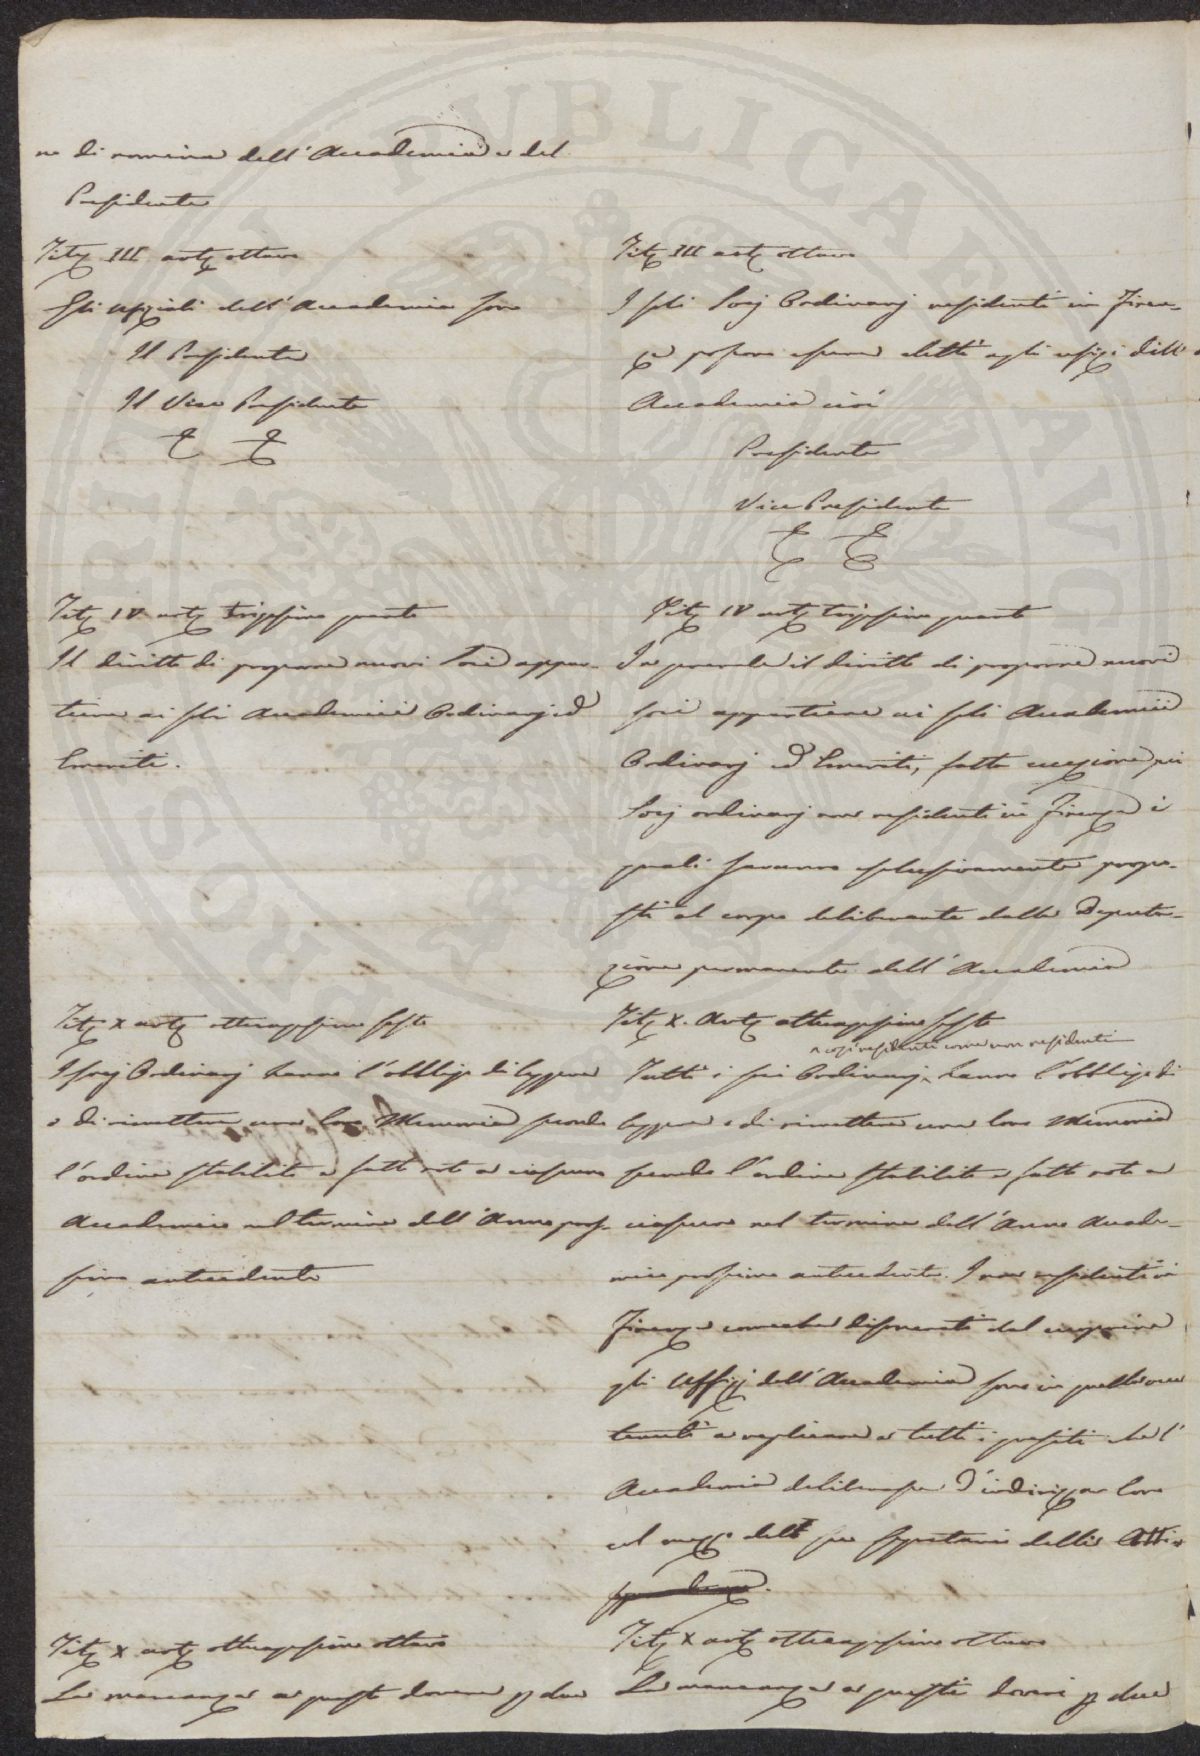 ne di nomina dell'Accademia e del
Presidente
Tit. III art. ottavo
Gli uffiziali dell'Accademia sono
Il Presidente
Il Vice Presidente
Tit. IV art. trigesimo quarto
Il diritto di proporre nuovi Socj appar-
tiene ai soli Accademici Ordinarj ed
Emeriti.
Tit. X art. ottuagesimo sesto
I socj Ordinarj hanno l'obbligo di leggere
o di rimettere una loro Memoria secondo
l'ordine stabilito e fatto noto a ciascuno
Accademico nel termine dell'Anno pros-
simo antecedente
Tit. X art. ottuagesimo ottavo
La mancanza a questo dovere p due
Tit. III art. ottavo
I soli Socj Ordinarj residenti in Firen-
ze possono essere eletti agli ufizi dell'
Accademia cioè
Presidente
Vice Presidente
Tit. IV art. trigesimo quarto
In generale il diritto di proporre nuovi
soci appartiene ai soli Accademici
Ordinarj ed Emeriti, fatta eccezione pei
Socj ordinarj non residenti in Firenze i
quali saranno esclusivamente propo-
sti al corpo deliberante dalla Deputa-
zione permanente dell'Accademia
Tit. X. Art. ottuagesimo sesto
così residenti come non residenti
Tutti i soci Ordinarj hanno l'obbligo di
leggere o di rimettere una loro Memoria
secondo l'ordine stabilito e fatto noto a
ciascuno nel termine dell'Anno Accade-
mico prossimo antecedente. I non residenti in
Firenze comeche dispensati dal cuoprire
gli Uffizj dell'Accademia sono in quella vece
tenuti a replicare a tutti i quesiti che l'
Accademia deliberasse d'indirizzar loro
col mezzo del suo Segretario delli Atti
Tit. X art. ottuagesimo ottavo
La mancanza a questi doveri p due